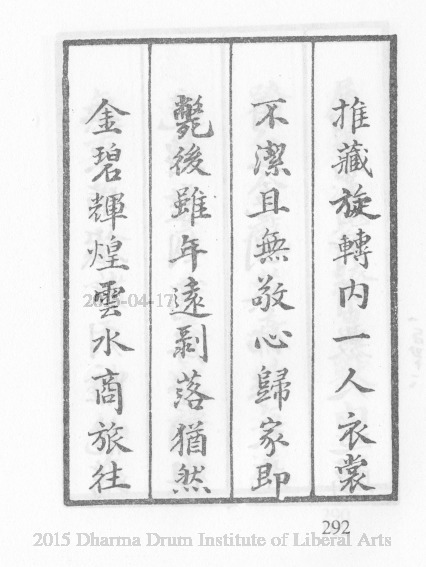 推藏旋轉內一人衣裳
不潔且無敬心歸家即
斃後雖年遠剥落猶然
金碧輝煌雲水商旅往
2015-04-17
292
2015 Dharma Drum Institute of Liberal Arts